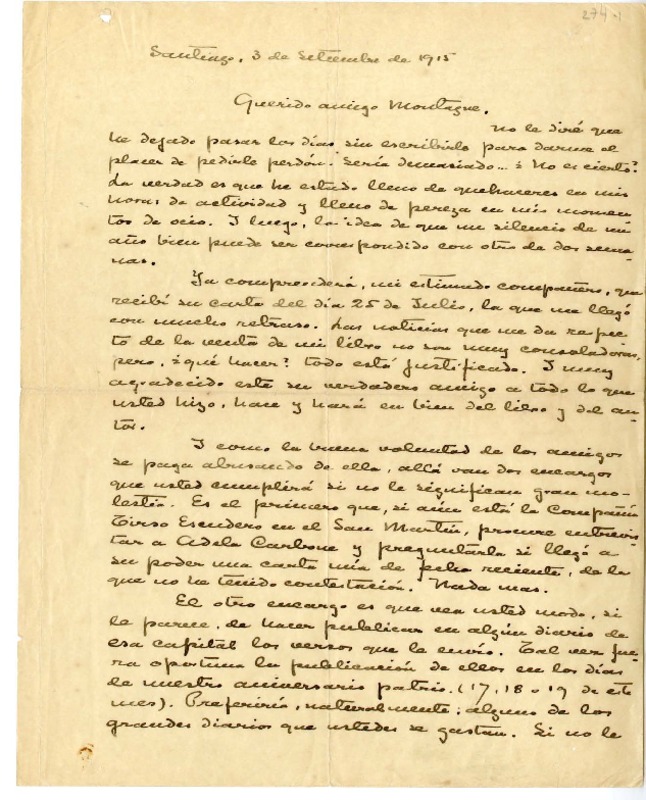 274-1
Santiago, 3 de Setiembre de 1915
Querido amigo Montagne.
No le diré que
he dejado pasar los días sin escribirle para darme el
placer de pedirle perdón. Sería demasiado... ¿No es cierto?
La verdad es que he estado lleno de quehaceres en mis
horas de actividad y lleno de pereza en mis momen
tos de ocio. I luego, la idea de que un silencio de un
año bien puede ser correspondido con otro de dos sema
nas.
Ya comprenderá, mi estimado compañero, que
recibí su carta del día 25 de Julio, la que me llegó
con mucho retraso. Las noticias que me da respec
to de la venta de mi libro no son muy consoladoras,
pero, ¿qué hacer? todo está justificado. I muy
agradecido este su verdadero amigo a todo lo que
usted hizo, hace y hará en bien del libro y del au
tor.
I como la buena voluntad de los amigos
se paga abusando de ella, allá van dos encargos
que usted cumplirá si no le significan gran mo-
lestia. Es el primero que, si aún está la Compañía
Tirso Escudero en el San Martín, procure entrevis
tar a Adela Carbone y preguntarla si llegó a
su poder una carta mía de fecha reciente, de la
que no he tenido contestación. Nada mas.
El otro encargo es que vea usted modo, si
le parece, de hacer publicar en algún diario de
esa capital los versos que le envío. Tal vez fue
ra oportuna la publicación de ellos en los días
de nuestro aniversario patrio. (17, 18 o 19 de este
mes). Preferiría, naturalmente, alguno de los
grandes diarios que ustedes se gastan. Si no le